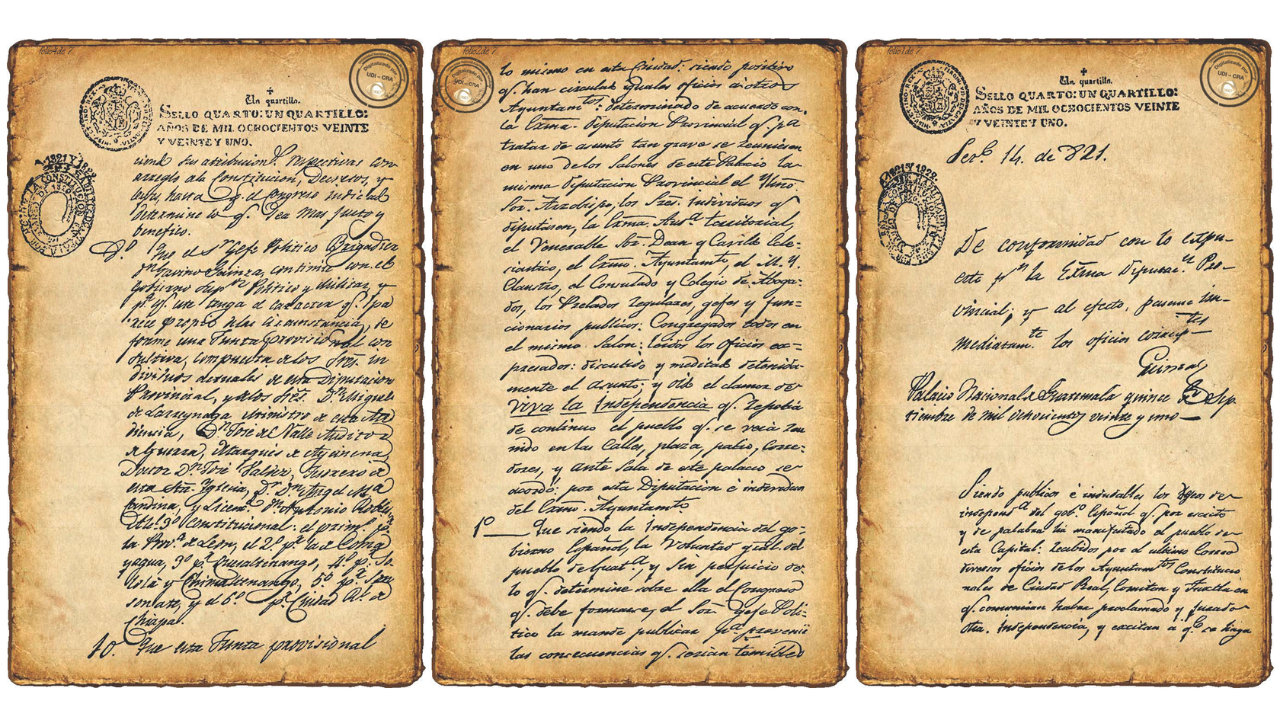 ✝
Un quartillo.
SELLO QUARTO: UN QUARTILLO:
AÑOS DE MIL OCHOCIENTOS VEINTE
Y VEINTE Y UNO.
Digitalizado por
UDI - CRA
sus atribucion.s respectivas con
arreglo a la Constitucion, Decretos, y
Leyes, hasta q.e el Congreso indicado
determine lo q.e sea mas justo y
benefico.
8.º Que el S.r Gefe Politico Brigadier
Gavino Gainza, continúe con el
Gobierno Sup.r Politico y Militar, y
p.a q.e este tenga el caracter q.e pa
rece propio de las circunstancias, se
forme una Junta provisional con
sultiva, compuesta de los Sres. in
dividuos actuales de esta Diputacion
Provincial, y de los Sres. D.n Miguel
de Larreynaga Ministro de esta Au
diencia, D.n José del Valle Auditor
de Guerra, Marques de Aycinena,
Doctor D.n José Valdez, Tesorero de
esta Sta. Yglesia, D.r D.n Angel Ma.
Candina, y Licen.do Antonio Robles
Alc.e 3º Constitucional: el prim.o p.r
la Prov.a de Leon, el 2.º p.r la de Coma
yagua, 3º p.r Quesaltenango, 4º p.r So
lolá y Chimaltenango, 5º p.r Son
sonate, y el 6º p.r Ciudad R.l de
Chiapa.
10. Que esta Junta provisional
Digitalizado por
UDI - CRA
lo mismo en esta Ciudad: siendo positivo
q.e han circulado iguales oficios á otros
Ayuntam.tos: determinado de acuerdo con
la Exma. Diputacion Provincial q.e p.a
tratar de asunto tan grave se reuniesen
en uno de los Salones de este Palacio la
misma Diputacion Provincial el Yllmo.
Sor. Arzobispo, los Sres. Individuos q.e
diputasen, la Exma. Aud.a territorial
el Venerable Sor. Dean y Cavildo Ecle-
siastico, el Exmo. Ayuntam.to, el M. Y.
Claustro, el Consulado y Colegio de Aboga-
dos, los Prelados regulares, gefes y fun-
cionarios publicos: Congregados todos en
el mismo Salon: leidos los oficios ex-
presados: discutido y meditado detenida-
mente el asunto; y oido el clamor de
Viva la Independencia q.e repetia
de continuo el pueblo q.e se veia reu-
nido en las Calles, plaza, patio, corre-
dores, y ante Sala de este palacio se
acordó: por esta Diputacion é individuos
del Exmo. Ayuntam.to
1º Que siendo la Independencia del go-
bierno Español, la Voluntad gral. del
pueblo de Guat.a, y sin perjuicio de
lo q.e determine sobre ella el Congreso
q.e debe formarse, el Sor. Gefe Poli-
tico la mande publicar p.a prevenir
las consecuencias q.e serian temibles
✝
Un quartillo.
SELLO QUARTO: UN QUARTILLO:
AÑOS DE MIL OCHOCIENTOS VEINTE
Y VEINTE Y UNO.
Digitalizado por
UDI - CRA
14. de 821.
De conformidad con lo expu-
esto p.r la Exma Diputac.n Pro-
vincial, y al efecto, pasense in-
mediatam.te los oficios corresp.tes
Gainza
Palacio Nacional de Guatemala quince de Sep-
tiembre de mil ochocientos veinte y uno
Siendo publicos é indudables los deseos de
independ.a del gob.o Español q.e por escrito
y de palabra ha manifestado el pueblo de
esta Capital: recibidos por el ultimo Correo
diversos oficios de los Ayuntam.tos Constitucio
nales de Ciudad Real, Comitan, y Tuxtla en
q.e comunican haber proclamado y jurado
dha. independencia, y excitan á q.e se haga